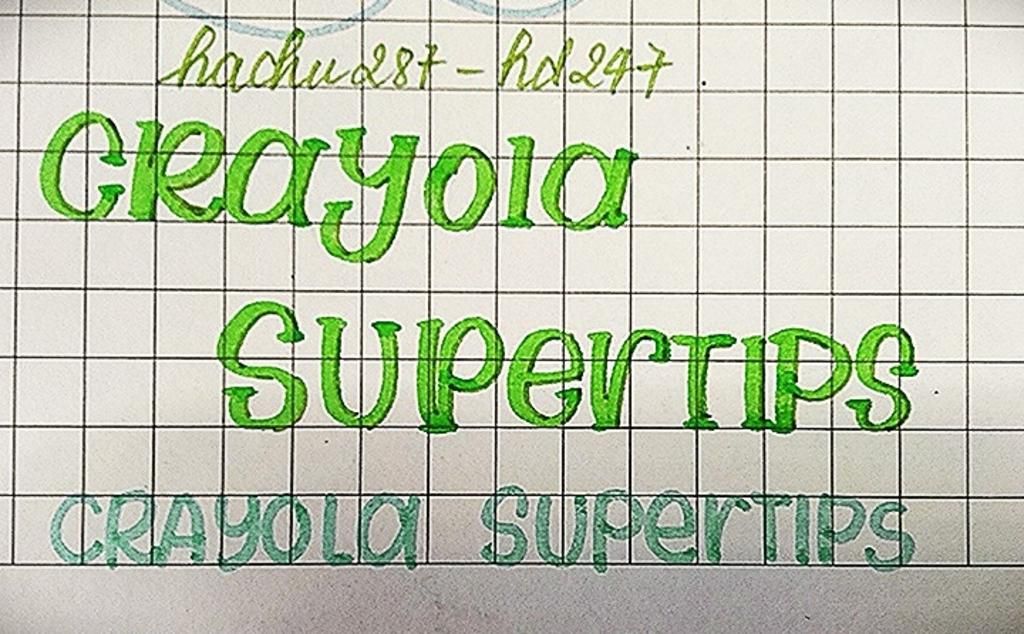 hachu287 - hd247
CRayola
SUPerTIPS
CRAYOLa SUPerTIPS